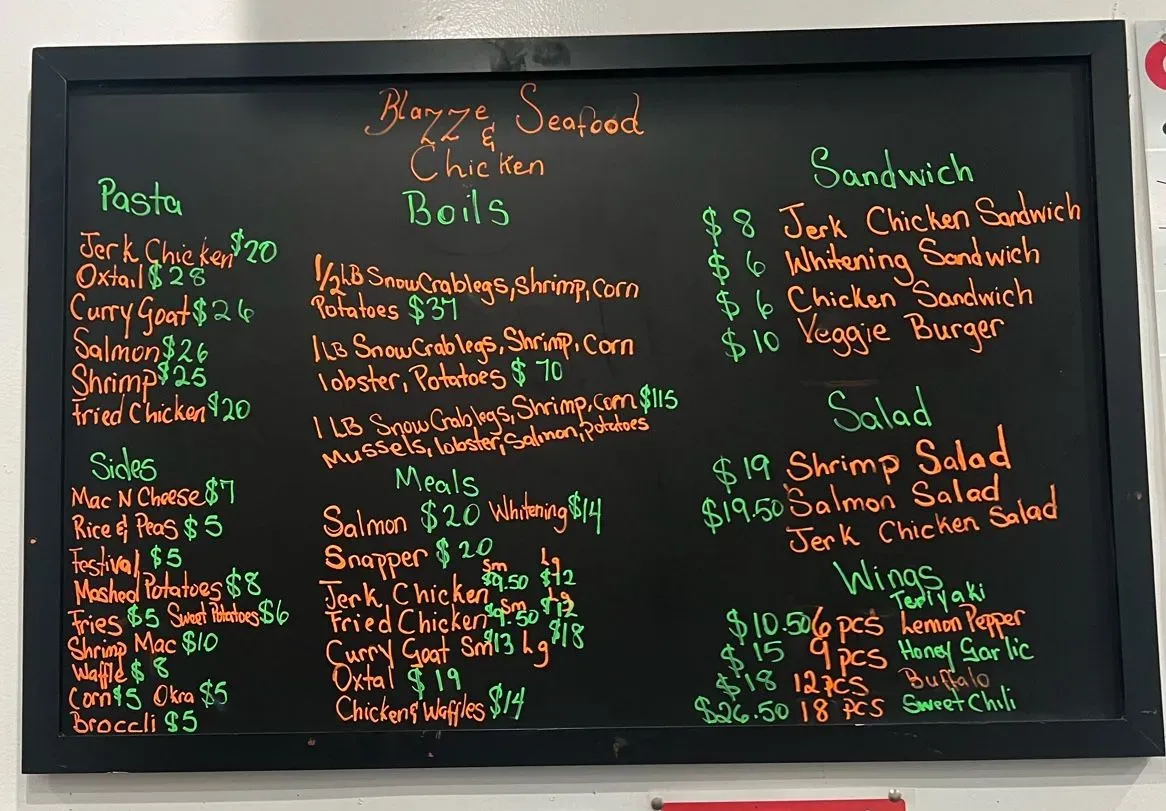 Blazze Seafood
&
Chicken
Pasta
Jerk Chicken $20
Oxtail $28
Curry Goat $26
Salmon $26
Shrimp $25
Fried Chicken $20
Sides
Mac N Cheese $7
Rice & Peas $5
Festival $5
Mashed Potatoes $8
Fries $5 Sweet Potatoes $6
Shrimp Mac $10
Waffle $8
Corn $5 Okra $5
Broccli $5
Boils
1/2 LB Snow Crab legs, Shrimp, Corn
Potatoes $37
1 LB Snow Crab legs, Shrimp, Corn
lobster, Potatoes $70
1 LB Snow Crab legs, Shrimp, corn $115
Mussels, lobster, Salmon, Potatoes
Meals
Salmon $20 Whitening $14
Snapper $20
Sm Lg
Jerk Chicken $9.50 $12
Sm Lg
Fried Chicken $9.50 $12
Curry Goat Sm $13 Lg $18
Oxtal $19
Chicken & Waffles $14
Sandwich
$8 Jerk Chicken Sandwich
$6 Whitening Sandwich
$6 Chicken Sandwich
$10 Veggie Burger
Salad
$19 Shrimp Salad
$19.50 Salmon Salad
Jerk Chicken Salad
Wings
Teriyaki
$10.50 6 pcs Lemon Pepper
$15 9 pcs Honey Garlic
$18 12 pcs Buffalo
$26.50 18 pcs Sweet Chili